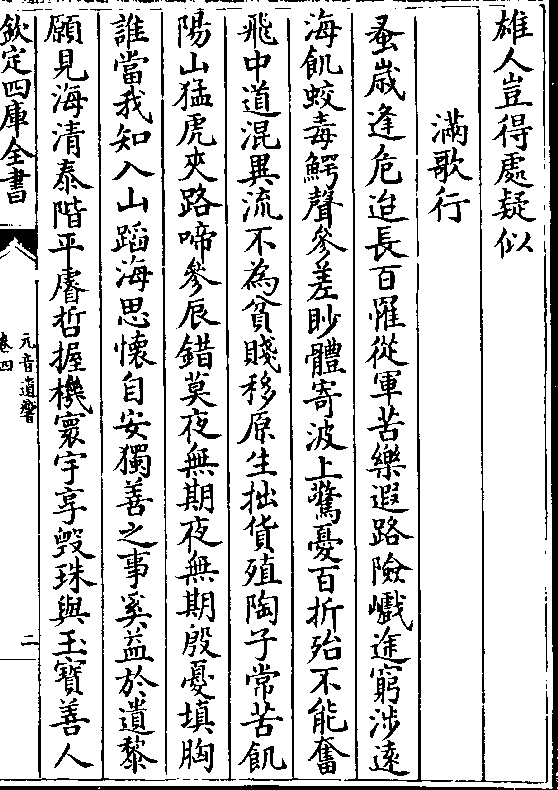 雄人豈得處疑似
滿歌行
蚤嵗逢危迫長百罹從軍苦樂遐路險巇途窮涉遠
海飢蛟毒鰐聲參差眇體寄波上驚憂百折殆不能奮
飛中道混異流不為貧賤移原生拙貨殖陶子常苦飢
陽山猛虎夾路啼參辰錯莫夜無期夜無期殷憂填胸
誰當我知入山蹈海思懷自安獨善之事奚益於遺黎
願見海清泰階平睿哲握機寰宇享毀珠與玉寶善人
欽定四庫全書
元音遺響
卷四
二